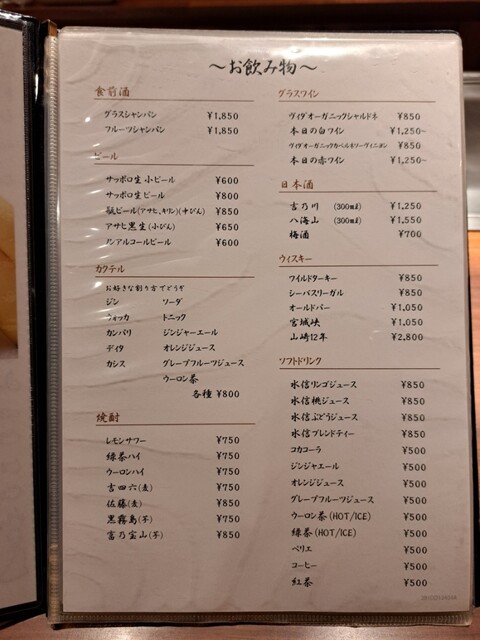 ～お飲み物～
食前酒
グラスシャンパン ¥1,850
フルーツシャンパン ¥1,850
ビール
サッポロ生小ビール ¥600
サッポロ生ビール ¥800
瓶ビール(アサヒ、キリン)(中びん) ¥850
アサヒ黒生(小びん) ¥650
ノンアルコールビール ¥600
カクテル
お好きな割り方でどうぞ
ジン ソーダ
ウォッカ トニック
カンパリ ジンジャーエール
ディタ オレンジジュース
カシス グレープフルーツジュース
ウーロン茶
各種 ¥800
焼酎
レモンサワー ¥750
緑茶ハイ ¥750
ウーロンハイ ¥750
吉四六(麦) ¥750
佐藤(麦) ¥850
黒霧島(芋) ¥750
富乃宝山(芋) ¥850
グラスワイン
ヴィダオーガニックシャルドネ ¥850
本日の白ワイン ¥1,250~
ヴィダオーガニックカベルネソーヴィニヨン ¥850
本日の赤ワイン ¥1,250~
日本酒
吉乃川 (300ml) ¥1,250
八海山 (300ml) ¥1,550
梅酒 ¥700
ウィスキー
ワイルドターキー ¥850
シーバスリーガル ¥850
オールドパー ¥1,050
宮城峡 ¥1,050
山崎12年 ¥2,800
ソフトドリンク
水信リンゴジュース ¥850
水信桃ジュース ¥850
水信ぶどうジュース ¥850
水信ブレンドティー ¥850
コカコーラ ¥500
ジンジャエール ¥500
オレンジジュース ¥500
グレープフルーツジュース ¥500
ウーロン茶(HOT/ICE) ¥500
緑茶(HOT/ICE) ¥500
ペリエ ¥500
コーヒー ¥500
紅茶 ¥500